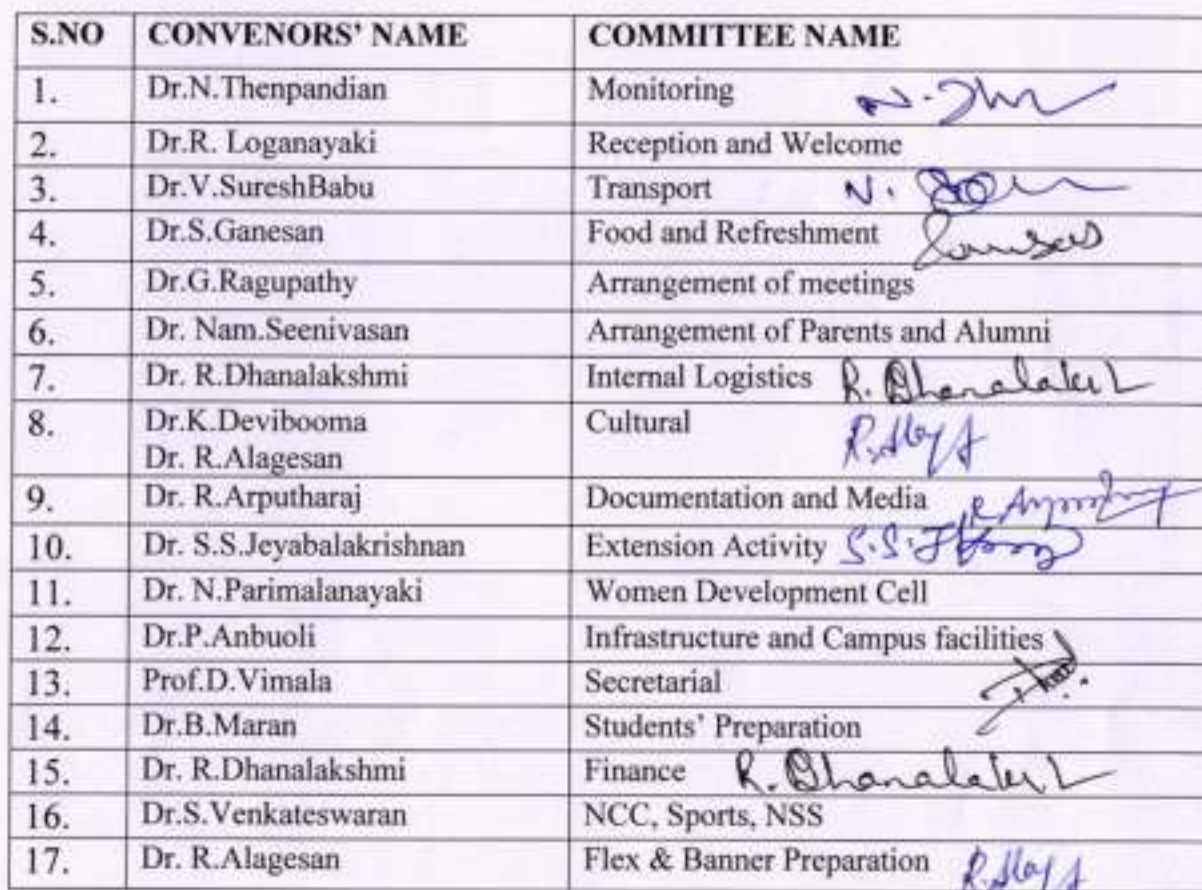 S.NO CONVENORS' NAME COMMITTEE NAME
1. Dr.N.Thenpandian Monitoring
2. Dr.R. Loganayaki Reception and Welcome
3. Dr.V.SureshBabu Transport
4. Dr.S.Ganesan Food and Refreshment
5. Dr.G.Ragupathy Arrangement of meetings
6. Dr. Nam.Seenivasan Arrangement of Parents and Alumni
7. Dr. R.Dhanalakshmi Internal Logistics
8. Dr.K.Devibooma Cultural
Dr. R.Alagesan
9. Dr. R.Arputharaj Documentation and Media
10. Dr. S.S.Jeyabalakrishnan Extension Activity
11. Dr. N.Parimalanayaki Women Development Cell
12. Dr.P.Anbuoli Infrastructure and Campus facilities
13. Prof.D.Vimala Secretarial
14. Dr.B.Maran Students' Preparation
15. Dr. R.Dhanalakshmi Finance
16. Dr.S.Venkateswaran NCC, Sports, NSS
17. Dr. R.Alagesan Flex & Banner Preparation